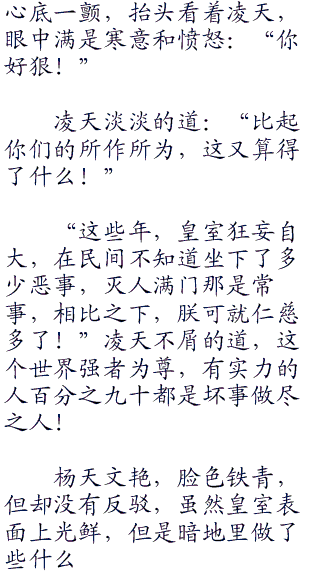 心底一颤，抬头看着凌天，
眼中满是寒意和愤怒：“你
好狠！”
凌天淡淡的道：“比起
你们的所作所为，这又算得
了什么！”
“这些年，皇室狂妄自
大，在民间不知道坐下了多
少恶事，灭人满门那是常
事，相比之下，朕可就仁慈
多了！”凌天不屑的道，这
个世界强者为尊，有实力的
人百分之九十都是坏事做尽
之人！
杨天文艳，脸色铁青，
但却没有反驳，虽然皇室表
面上光鲜，但是暗地里做了
些什么